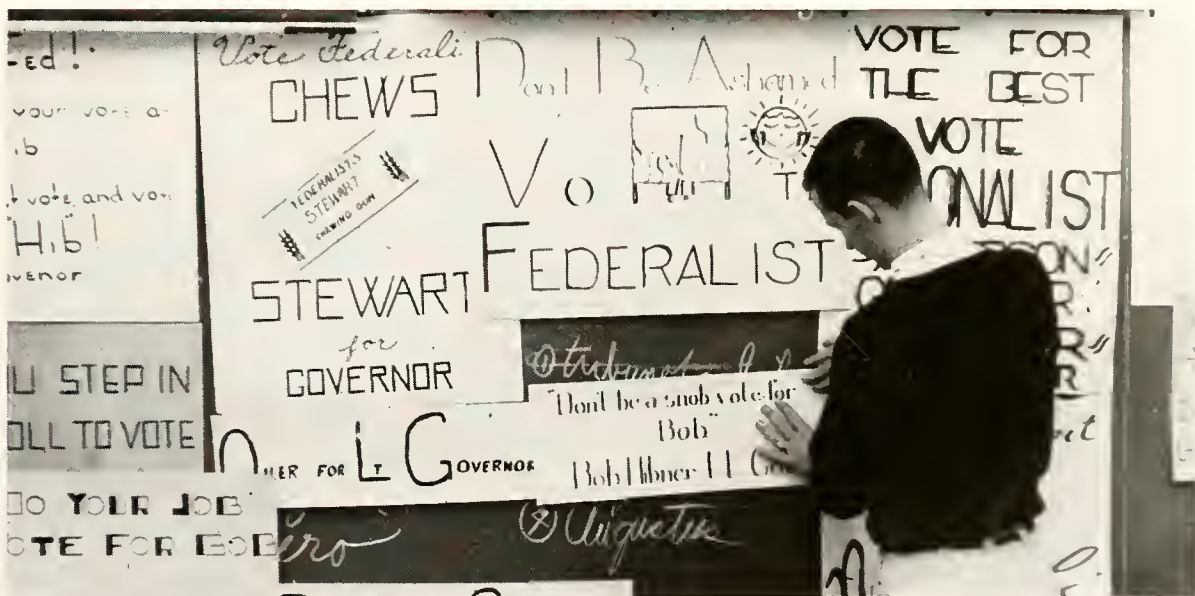 Fed!
your vote a
ib
t vote, and vote
"Hib"!
overnor
U STEP IN
OLL TO VOTE
DO YOUR JOB
OTE FOR BOB
Vote Federali
CHEWS
FEDERALISTS
STEWART
CHEWING GUM
STEWART
for
GOVERNOR
Dont Be Ashamed
VO T
FEDERALIST
FOR LT GOVERNOR
"Don't be a snob vote for
Bob"
Bob Hibner Lt. Go
ero
⑧ Augustus
VOTE FOR
THE BEST
VOTE
IONALIST
ON"
R
R"
R